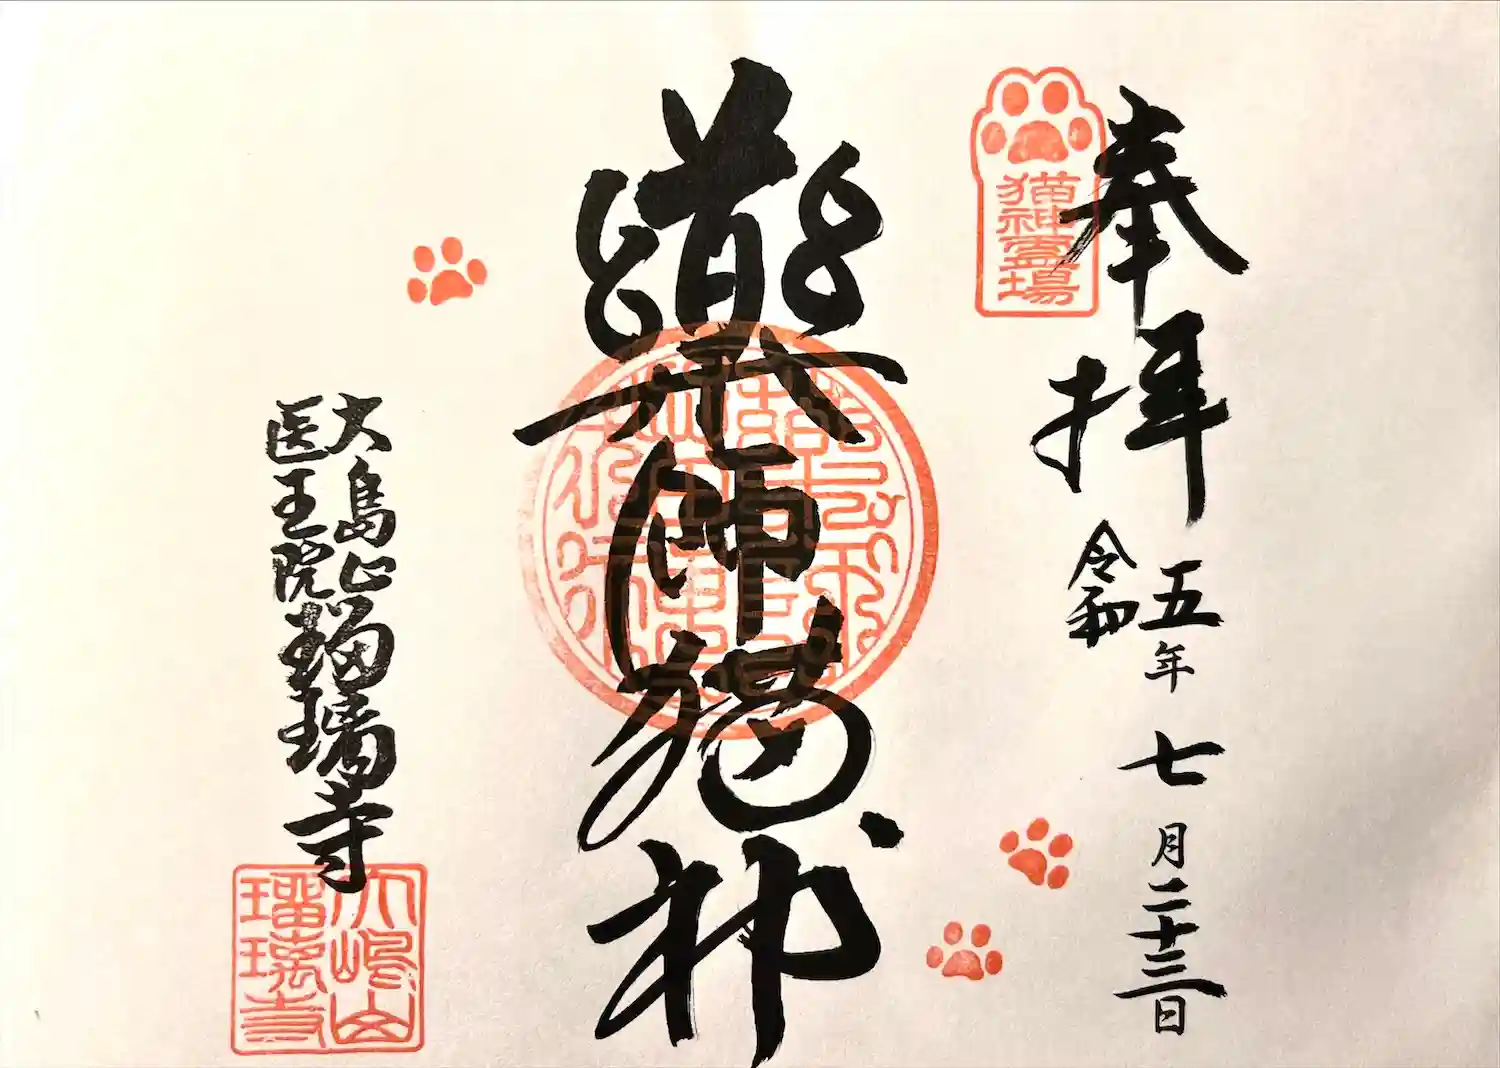 奉拝
令和
五年七月二十三日
猫神霊場
薬師猫神
大島山
医王院
瑠璃寺
大嶋山
瑠璃寺